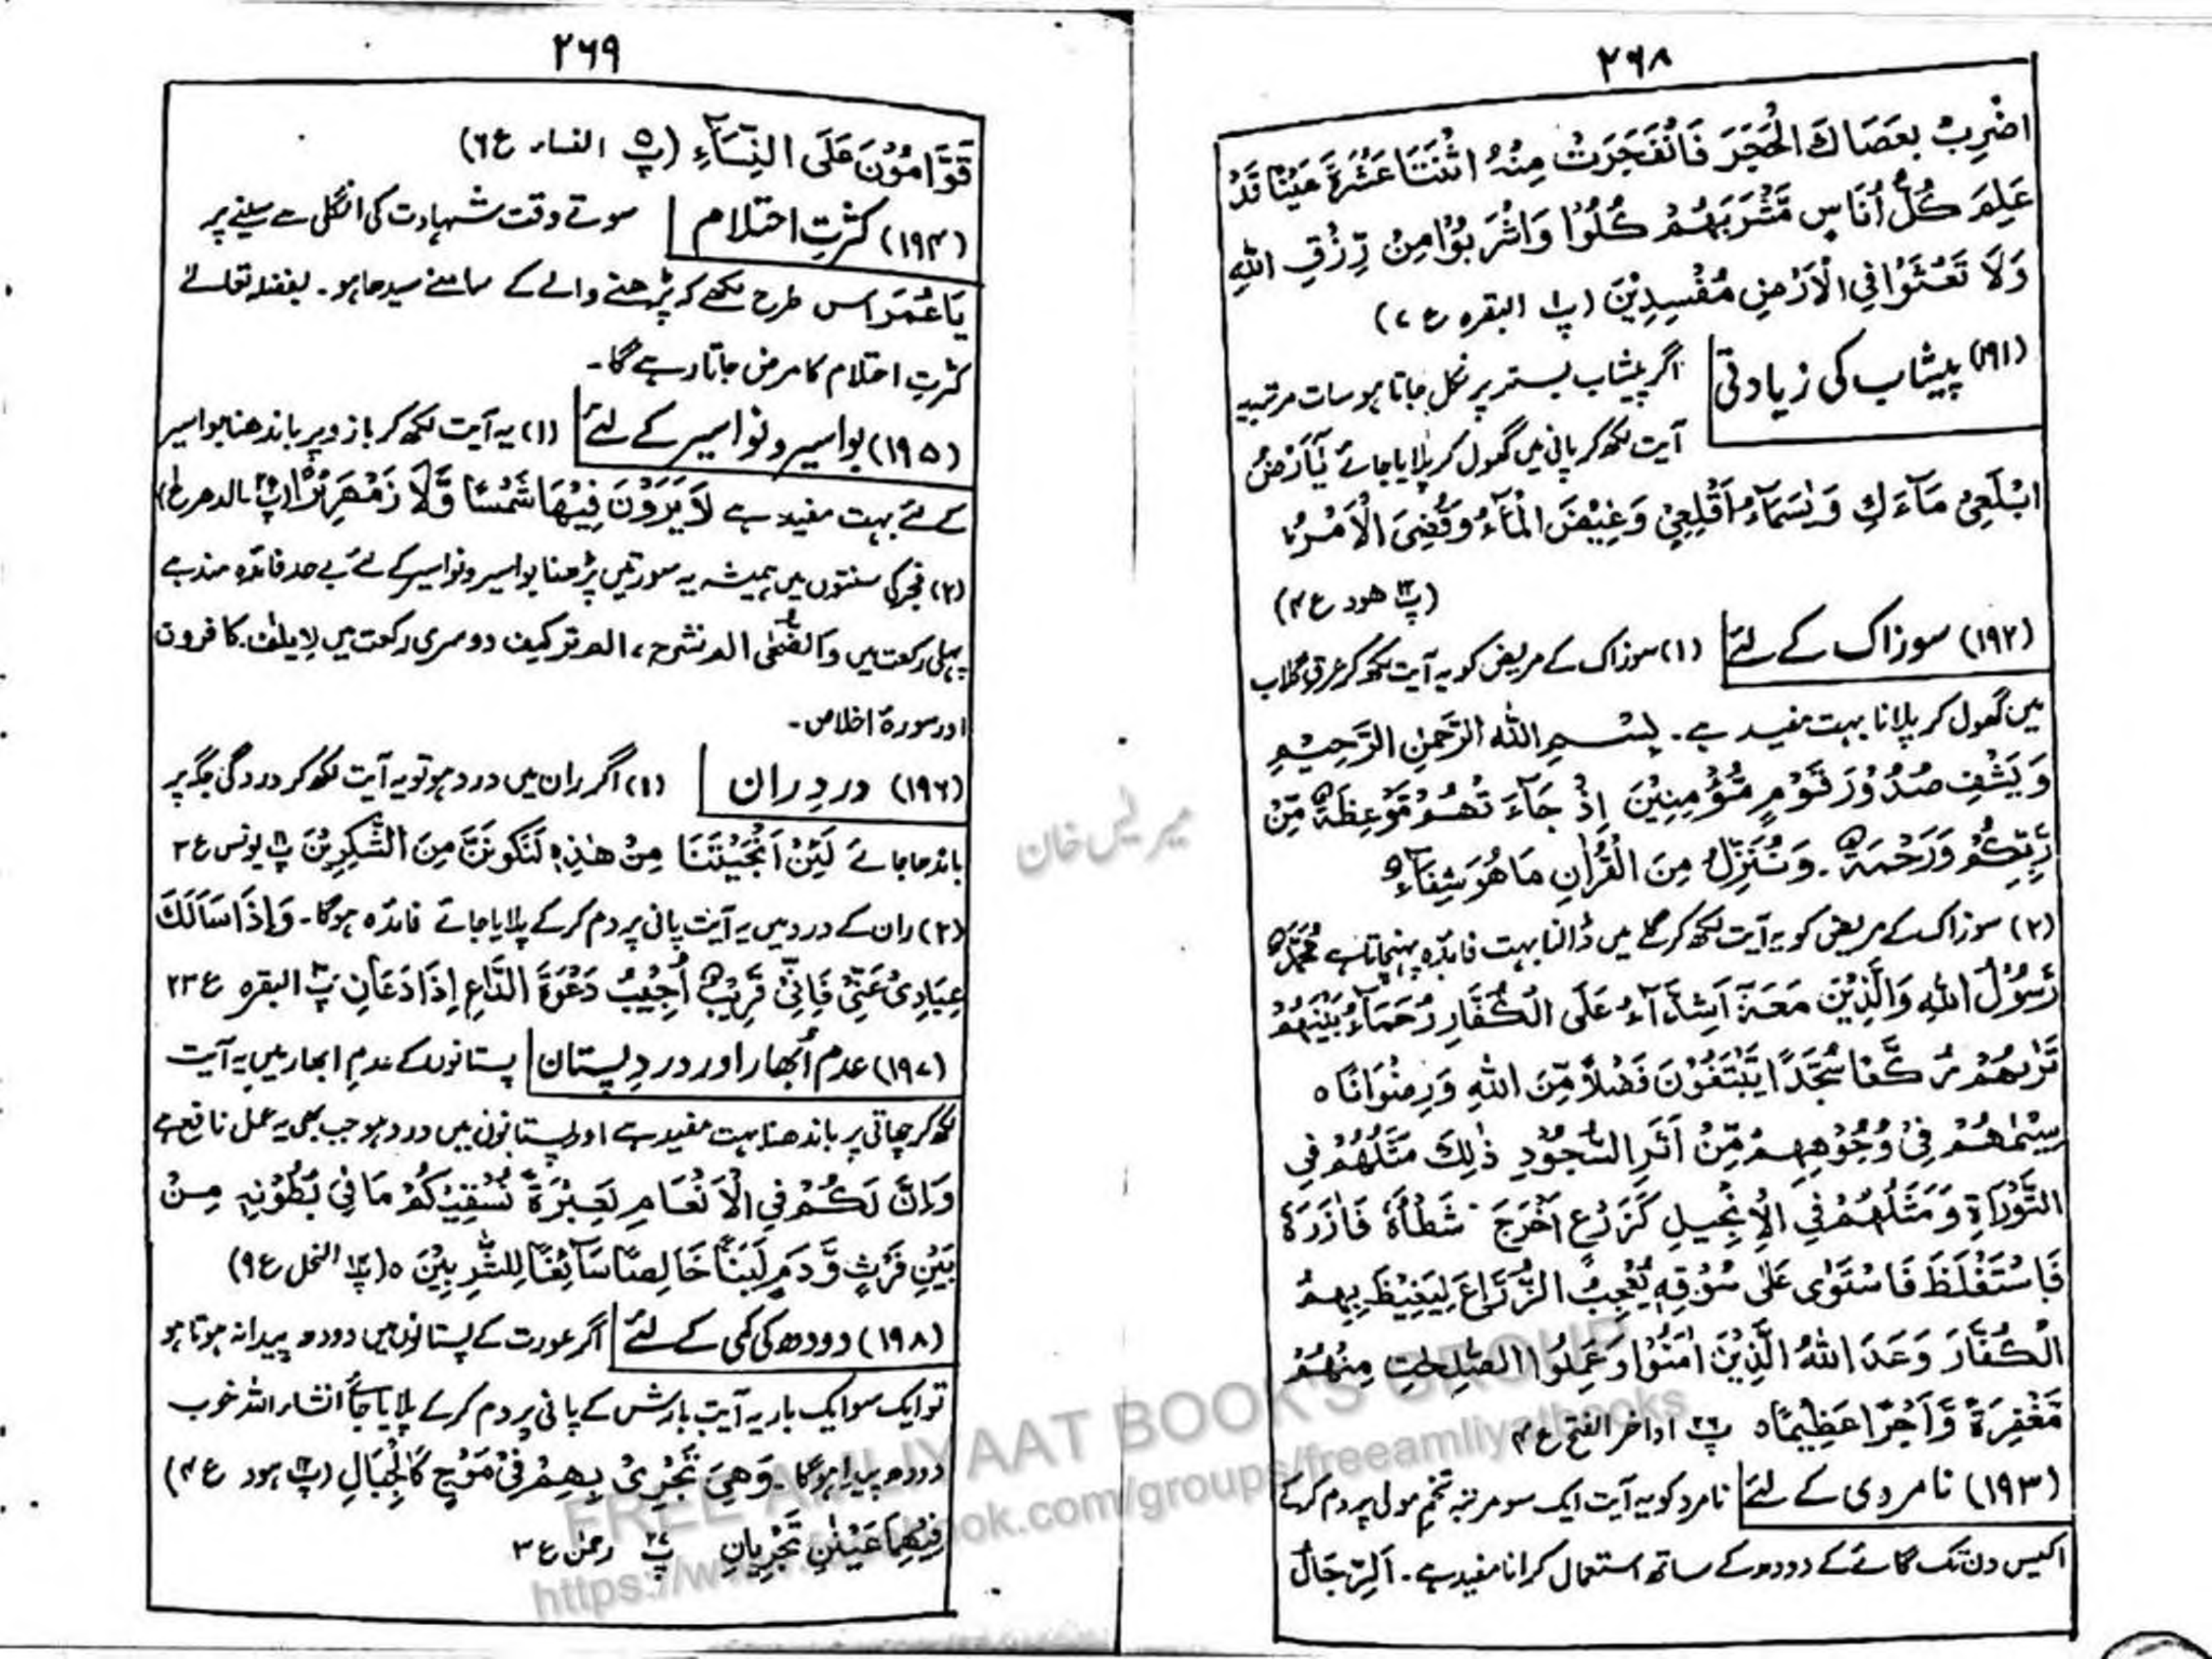 ۲۶۸
اضْرِبْ بِعَصَاكَ الْحَجَرَ فَانْفَجَرَتْ مِنْهُ اثْنَتَا عَشْرَةَ عَيْنًا قَدْ
عَلِمَ كُلُّ اُنَاسٍ مَّشْرَبَهُمْ كُلُوْا وَاشْرَبُوْا مِنْ رِّزْقِ اللّٰهِ
وَلَا تَعْثَوْا فِي الْاَرْضِ مُفْسِدِيْنَ (پ۱ البقرہ ع ۷)
(۱۹۱) پیشاب کی زیادتی اگر پیشاب بستر پر نکل جاتا ہو سات مرتبہ یہ
آیت لکھ کر پانی میں گھول کر پلایا جائے يٰٓاَرْضُ
ابْلَعِيْ مَآءَكِ وَيٰسَمَآءُ اَقْلِعِيْ وَغِيْضَ الْمَآءُ وَقُضِىَ الْاَمْرُ
(پ۱۲ ھود ع ۴)
(۱۹۲) سوزاک کے لئے (۱) سوزاک کے مریض کو یہ آیت لکھ کر عرق گلاب
میں گھول کر پلانا بہت مفید ہے۔ بِسْمِ اللّٰهِ الرَّحْمٰنِ الرَّحِيْمِ
وَيَشْفِ صُدُوْرَ قَوْمٍ مُّؤْمِنِيْنَ اِذْ جَآءَ تْهُمْ مَّوْعِظَةٌ مِّنْ
رَّبِّكُمْ وَرَحْمَةٌ۔ وَنُنَزِّلُ مِنَ الْقُرْاٰنِ مَا هُوَ شِفَآءٌ
(۲) سوزاک کے مریض کو یہ آیت لکھ کر گلے میں ڈالنا بہت فائدہ پہنچاتا ہے مُحَمَّدٌ
رَّسُوْلُ اللّٰهِ وَالَّذِيْنَ مَعَهٗٓ اَشِدَّآءُ عَلَى الْكُفَّارِ رُحَمَآءُ بَيْنَهُمْ
تَرٰىهُمْ رُكَّعًا سُجَّدًا يَّبْتَغُوْنَ فَضْلًا مِّنَ اللّٰهِ وَرِضْوَانًا ٥
سِيْمَاهُمْ فِيْ وُجُوْهِهِمْ مِّنْ اَثَرِ السُّجُوْدِ ذٰلِكَ مَثَلُهُمْ فِي
التَّوْرَاةِ وَمَثَلُهُمْ فِي الْاِنْجِيْلِ كَزَرْعٍ اَخْرَجَ شَطْأَهٗ فَاٰزَرَهٗ
فَاسْتَغْلَظَ فَاسْتَوٰى عَلٰى سُوْقِهٖ يُعْجِبُ الزُّرَّاعَ لِيَغِيْظَ بِهِمُ
الْكُفَّارَ وَعَدَ اللّٰهُ الَّذِيْنَ اٰمَنُوْا وَعَمِلُوا الصّٰلِحٰتِ مِنْهُمْ
مَّغْفِرَةً وَّاَجْرًا عَظِيْمًا ٥ پ۲۶ اواخر الفتح ع ۴
(۱۹۳) نامردی کے لئے نامرد کو یہ آیت ایک سو مرتبہ تخم مولی پر دم کرکے
اکیس دن تک گائے کے دودھ کے ساتھ استعمال کرانا مفید ہے۔ اَلرِّجَالُ
۲۶۹
قَوَّامُوْنَ عَلَى النِّسَآءِ (پ۵ النساء ع ۶)
(۱۹۴) کثرتِ احتلام سوتے وقت شہادت کی انگلی سے سینے پر
يَا عُمَرُ اس طرح لکھے کہ پڑھنے والے کے سامنے سیدھا ہو۔ بفضلہ تعالےٰ
کثرتِ احتلام کا مرض جاتا رہے گا۔
(۱۹۵) بواسیر و نواسیر کے لئے (۱) یہ آیت لکھ کر بازو پر باندھنا بواسیر
کے لئے بہت مفید ہے لَا يَرَوْنَ فِيْهَا شَمْسًا وَّلَا زَمْهَرِيْرًا (پ۲۹ الدھر ع۱)
(۲) فجر کی سنتوں میں ہمیشہ یہ سورتیں پڑھنا بواسیر و نواسیر کے لئے بے حد فائدہ مند ہے
پہلی رکعت میں والضحٰی الم نشرح، الم ترکیف دوسری رکعت میں لایلٰف۔ کافرون
اور سورۂ اخلاص۔
(۱۹۶) دردِ ران (۱) اگر ران میں درد ہو تو یہ آیت لکھ کر درد کی جگہ پر
باندھا جائے لَئِنْ اَنْجَيْتَنَا مِنْ هٰذِهٖ لَنَكُوْنَنَّ مِنَ الشّٰكِرِيْنَ پ۱۱ یونس ع ۳
(۲) ران کے درد میں یہ آیت پانی پر دم کرکے پلایا جائے فائدہ ہوگا۔ وَاِذَا سَاَلَكَ
عِبَادِيْ عَنِّيْ فَاِنِّيْ قَرِيْبٌ اُجِيْبُ دَعْوَةَ الدَّاعِ اِذَا دَعَانِ پ۲ البقرہ ع ۲۳
(۱۹۷) عدم اُبھار اور دردِ پستان پستانوں کے عدمِ ابھار میں یہ آیت
لکھ کر چھاتی پر باندھنا بہت مفید ہے اور پستانوں میں درد ہو جب بھی یہ عمل نافع ہے
وَاِنَّ لَكُمْ فِي الْاَنْعَامِ لَعِبْرَةً نُسْقِيْكُمْ مَا فِيْ بُطُوْنِهٖ مِنْ
بَيْنِ فَرْثٍ وَّدَمٍ لَبَنًا خَالِصًا سَآئِغًا لِلشّٰرِبِيْنَ ٥ (پ۱۴ النحل ع ۹)
(۱۹۸) دودھ کی کمی کے لئے اگر عورت کے پستانوں میں دودھ پیدا نہ ہوتا ہو
تو ایک سو ایک بار یہ آیت بارش کے پانی پر دم کرکے پلایا جائے انشاء اللہ خوب
دودھ پیدا ہوگا۔ وَهِيَ تَجْرِيْ بِهِمْ فِيْ مَوْجٍ كَالْجِبَالِ (پ۱۲ ہود ع ۴)
فِيْهِمَا عَيْنٰنِ تَجْرِيَانِ پ۲۷ رحمٰن ع ۳
FREE AMLIYAAT BOOK'S GROUP
https://www.facebook.com/groups/freeamliyatbooks